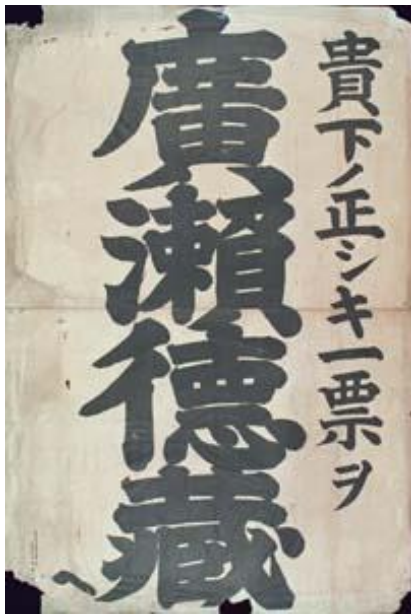 貴下ノ正シキ一票ヲ
廣瀬德藏へ